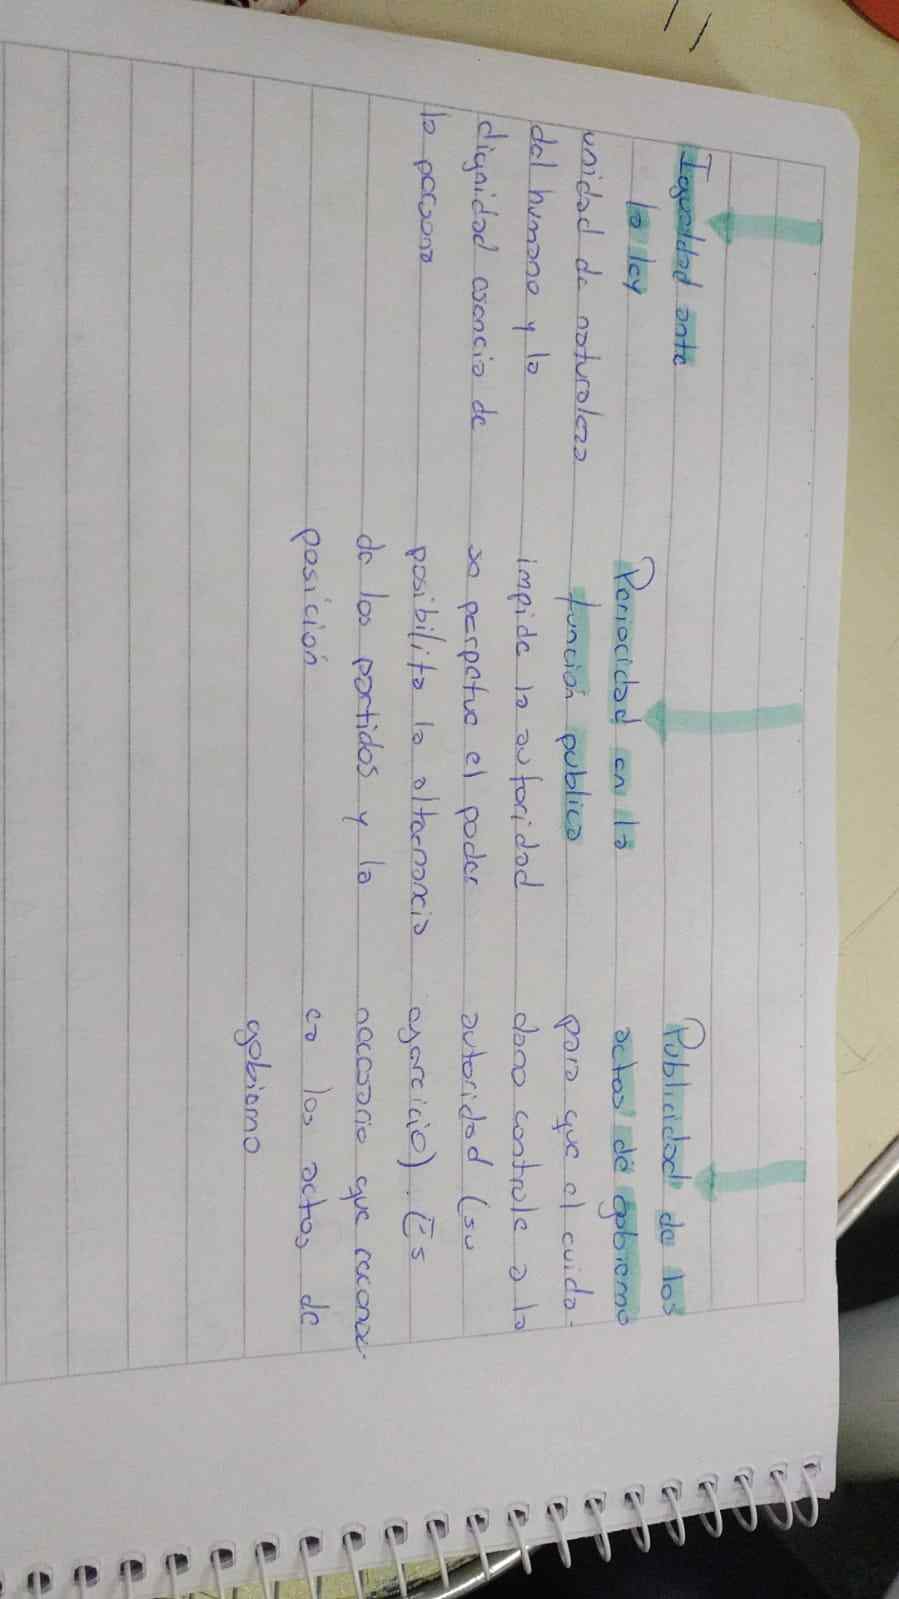 Igualdad ante
la ley
unidad de naturaleza
del humano y la
dignidad esencia de
la persona
Periocidad en la
función publica
impide la autoridad
se perpetue el poder
posibilita la alternancia
de los partidos y la
posición
Publicidad de los
actos de gobierno
para que el cuida-
dano controle a la
autoridad (su
ejercicio). Es
necesario que reconoz-
ca los actos de
gobierno